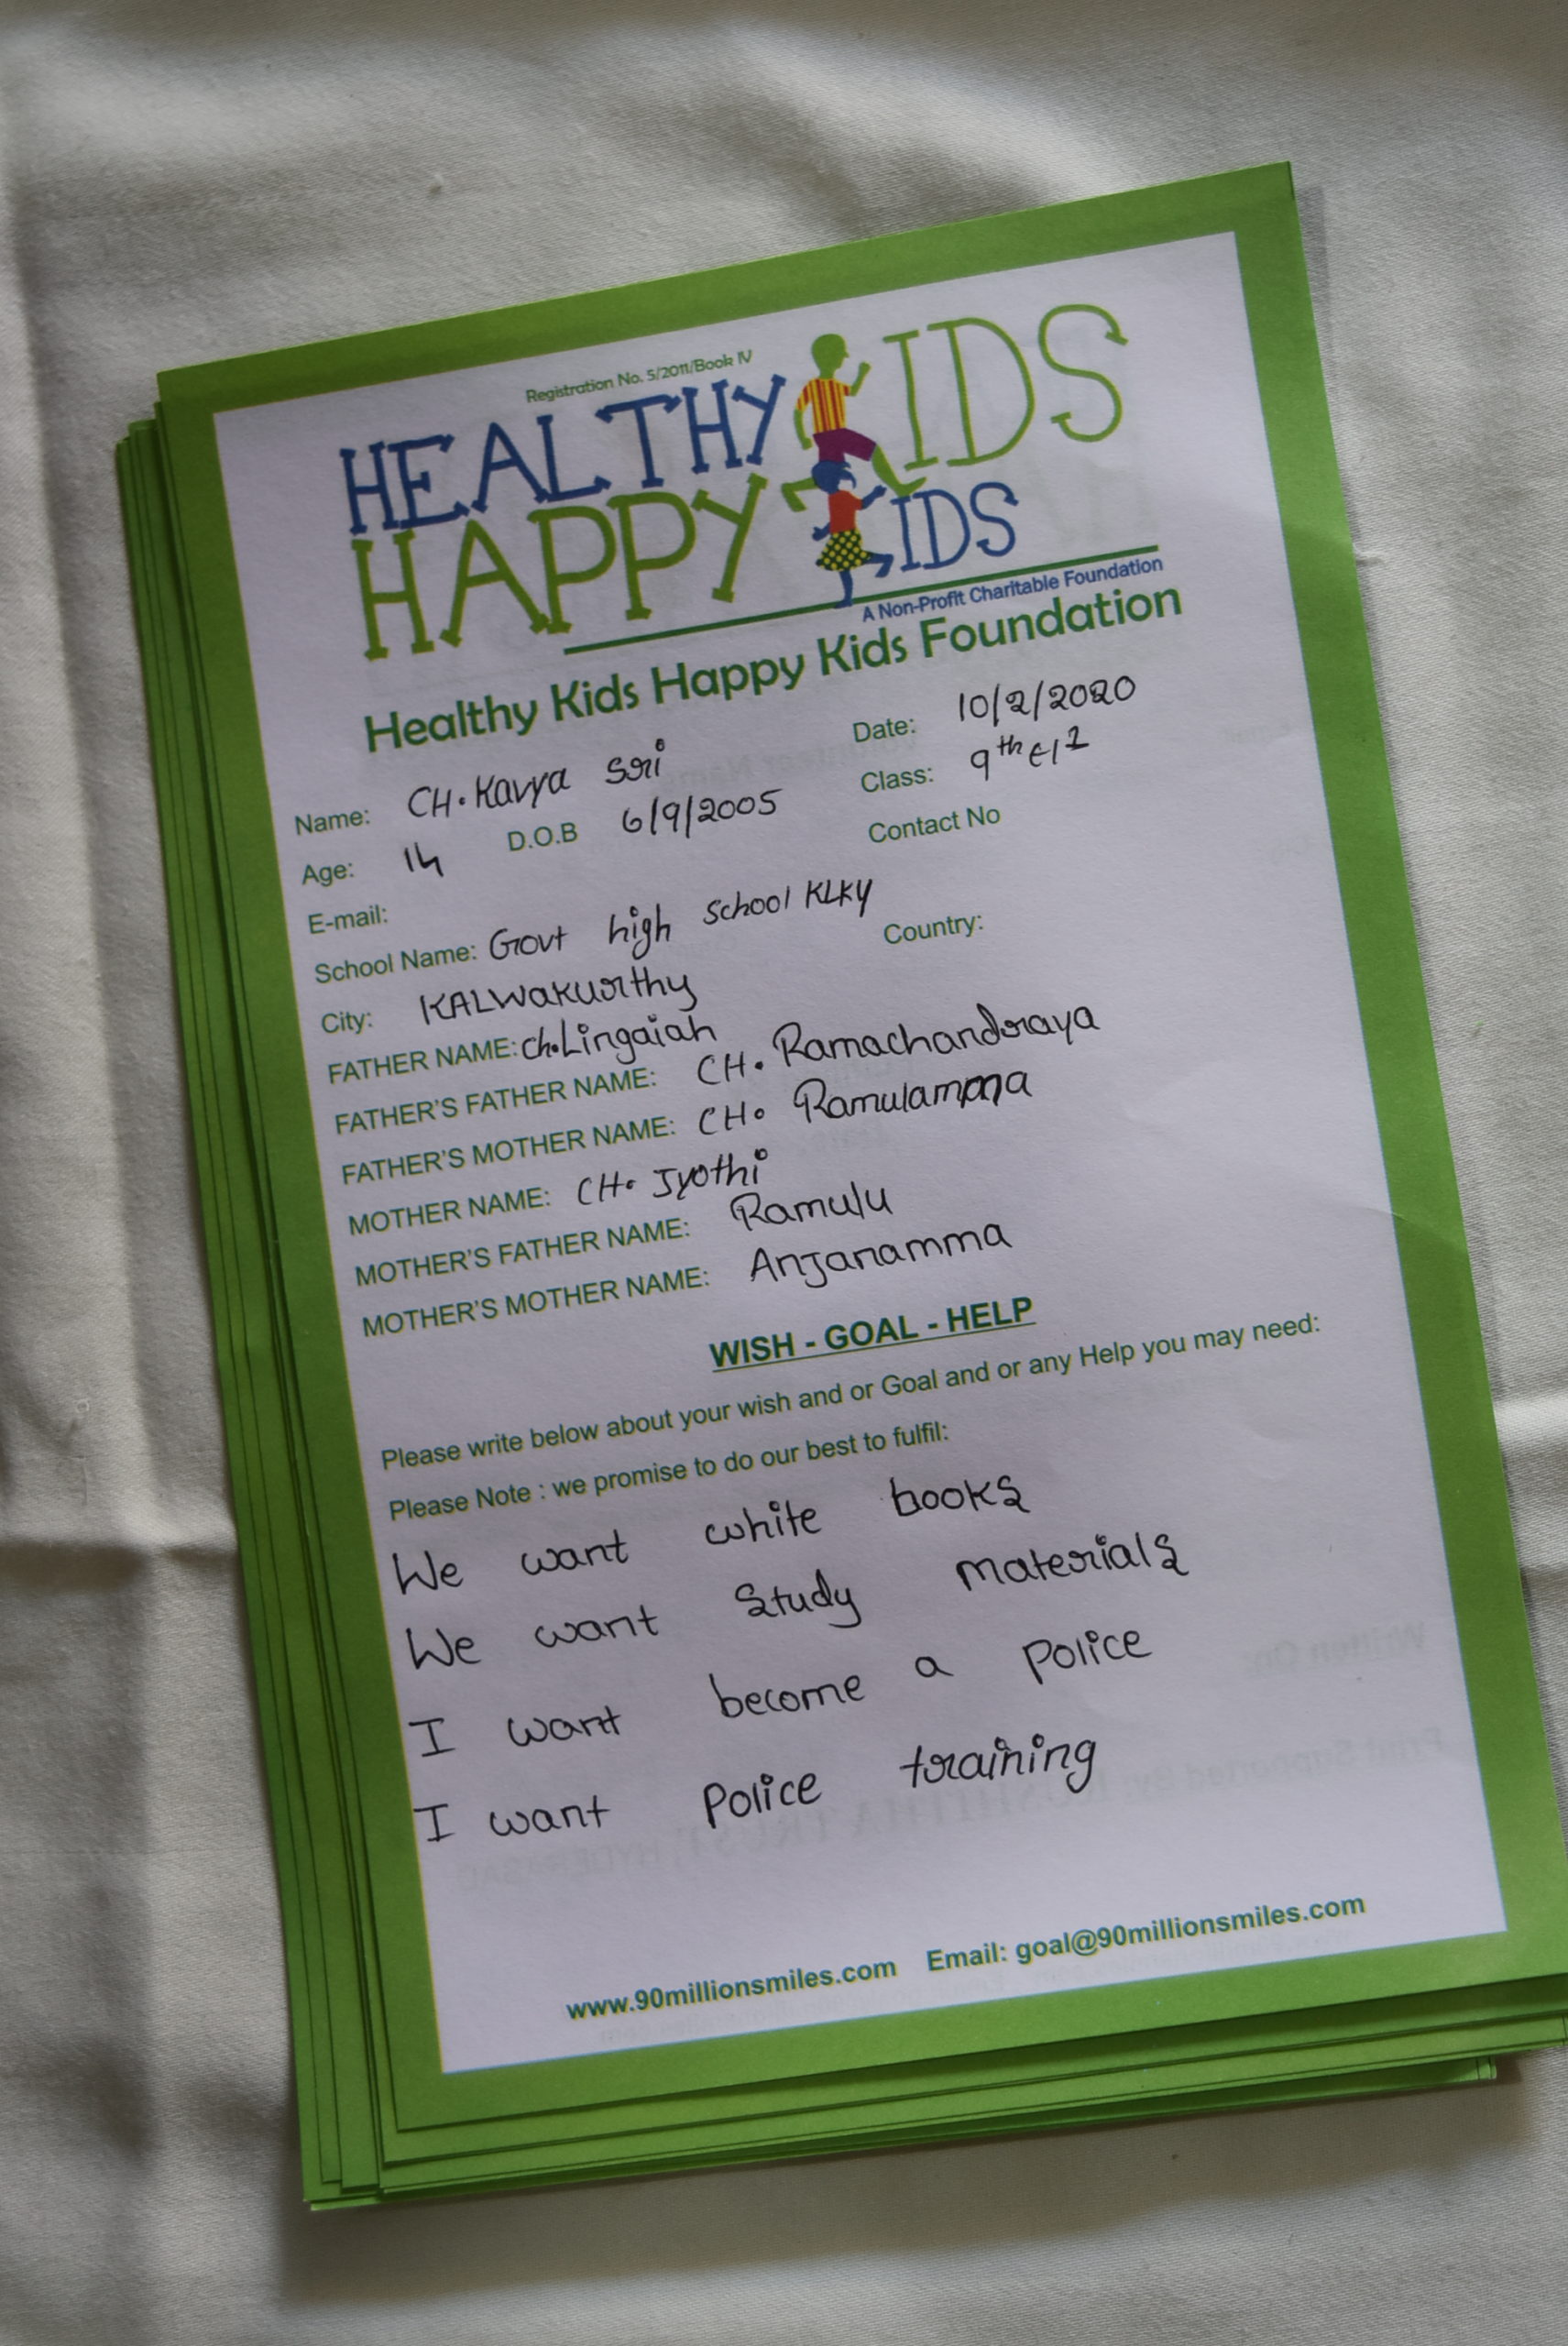 Registration No. 5/2011/Book IV
HEALTHY KIDS
HAPPY KIDS
A Non-Profit Charitable Foundation
Healthy Kids Happy Kids Foundation
Name: CH. Kavya Sri Date: 10/2/2020
Age: 14 D.O.B 6/9/2005 Class: 9th
E-mail: Contact No
School Name: Govt high School KLKY
City: KALWakurthy Country:
FATHER NAME: Ch. Lingaiah
FATHER'S FATHER NAME: CH. Ramachandraya
FATHER'S MOTHER NAME: CH. Ramulamma
MOTHER NAME: CH. Jyothi
MOTHER'S FATHER NAME: Ramulu
MOTHER'S MOTHER NAME: Anjanamma
WISH - GOAL - HELP
Please write below about your wish and or Goal and or any Help you may need:
Please Note : we promise to do our best to fulfil:
We want white books
We want Study materials
I want become a Police
I want Police training
www.90millionsmiles.com Email: goal@90millionsmiles.com